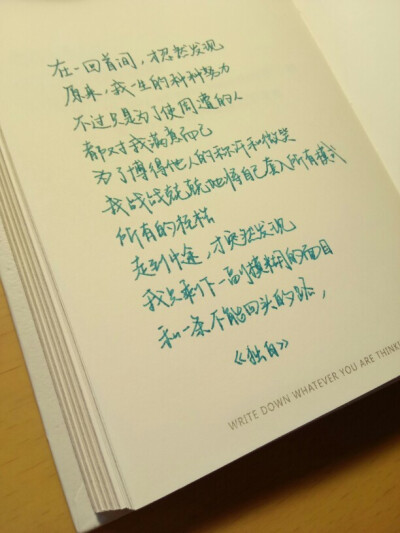 在一回首间，才忽然发现
原来，我一生的种种努力
不过只是为了使周遭的人
都对我满意而已
为了博得他人的称许和微笑
我战战兢兢地将自己套入所有模式
所有的桎梏
走到中途，才突然发现
我只剩下一副模糊的面目
和一条不能回头的路，
《独白》
WRITE DOWN WHATEVER YOU ARE THINKI